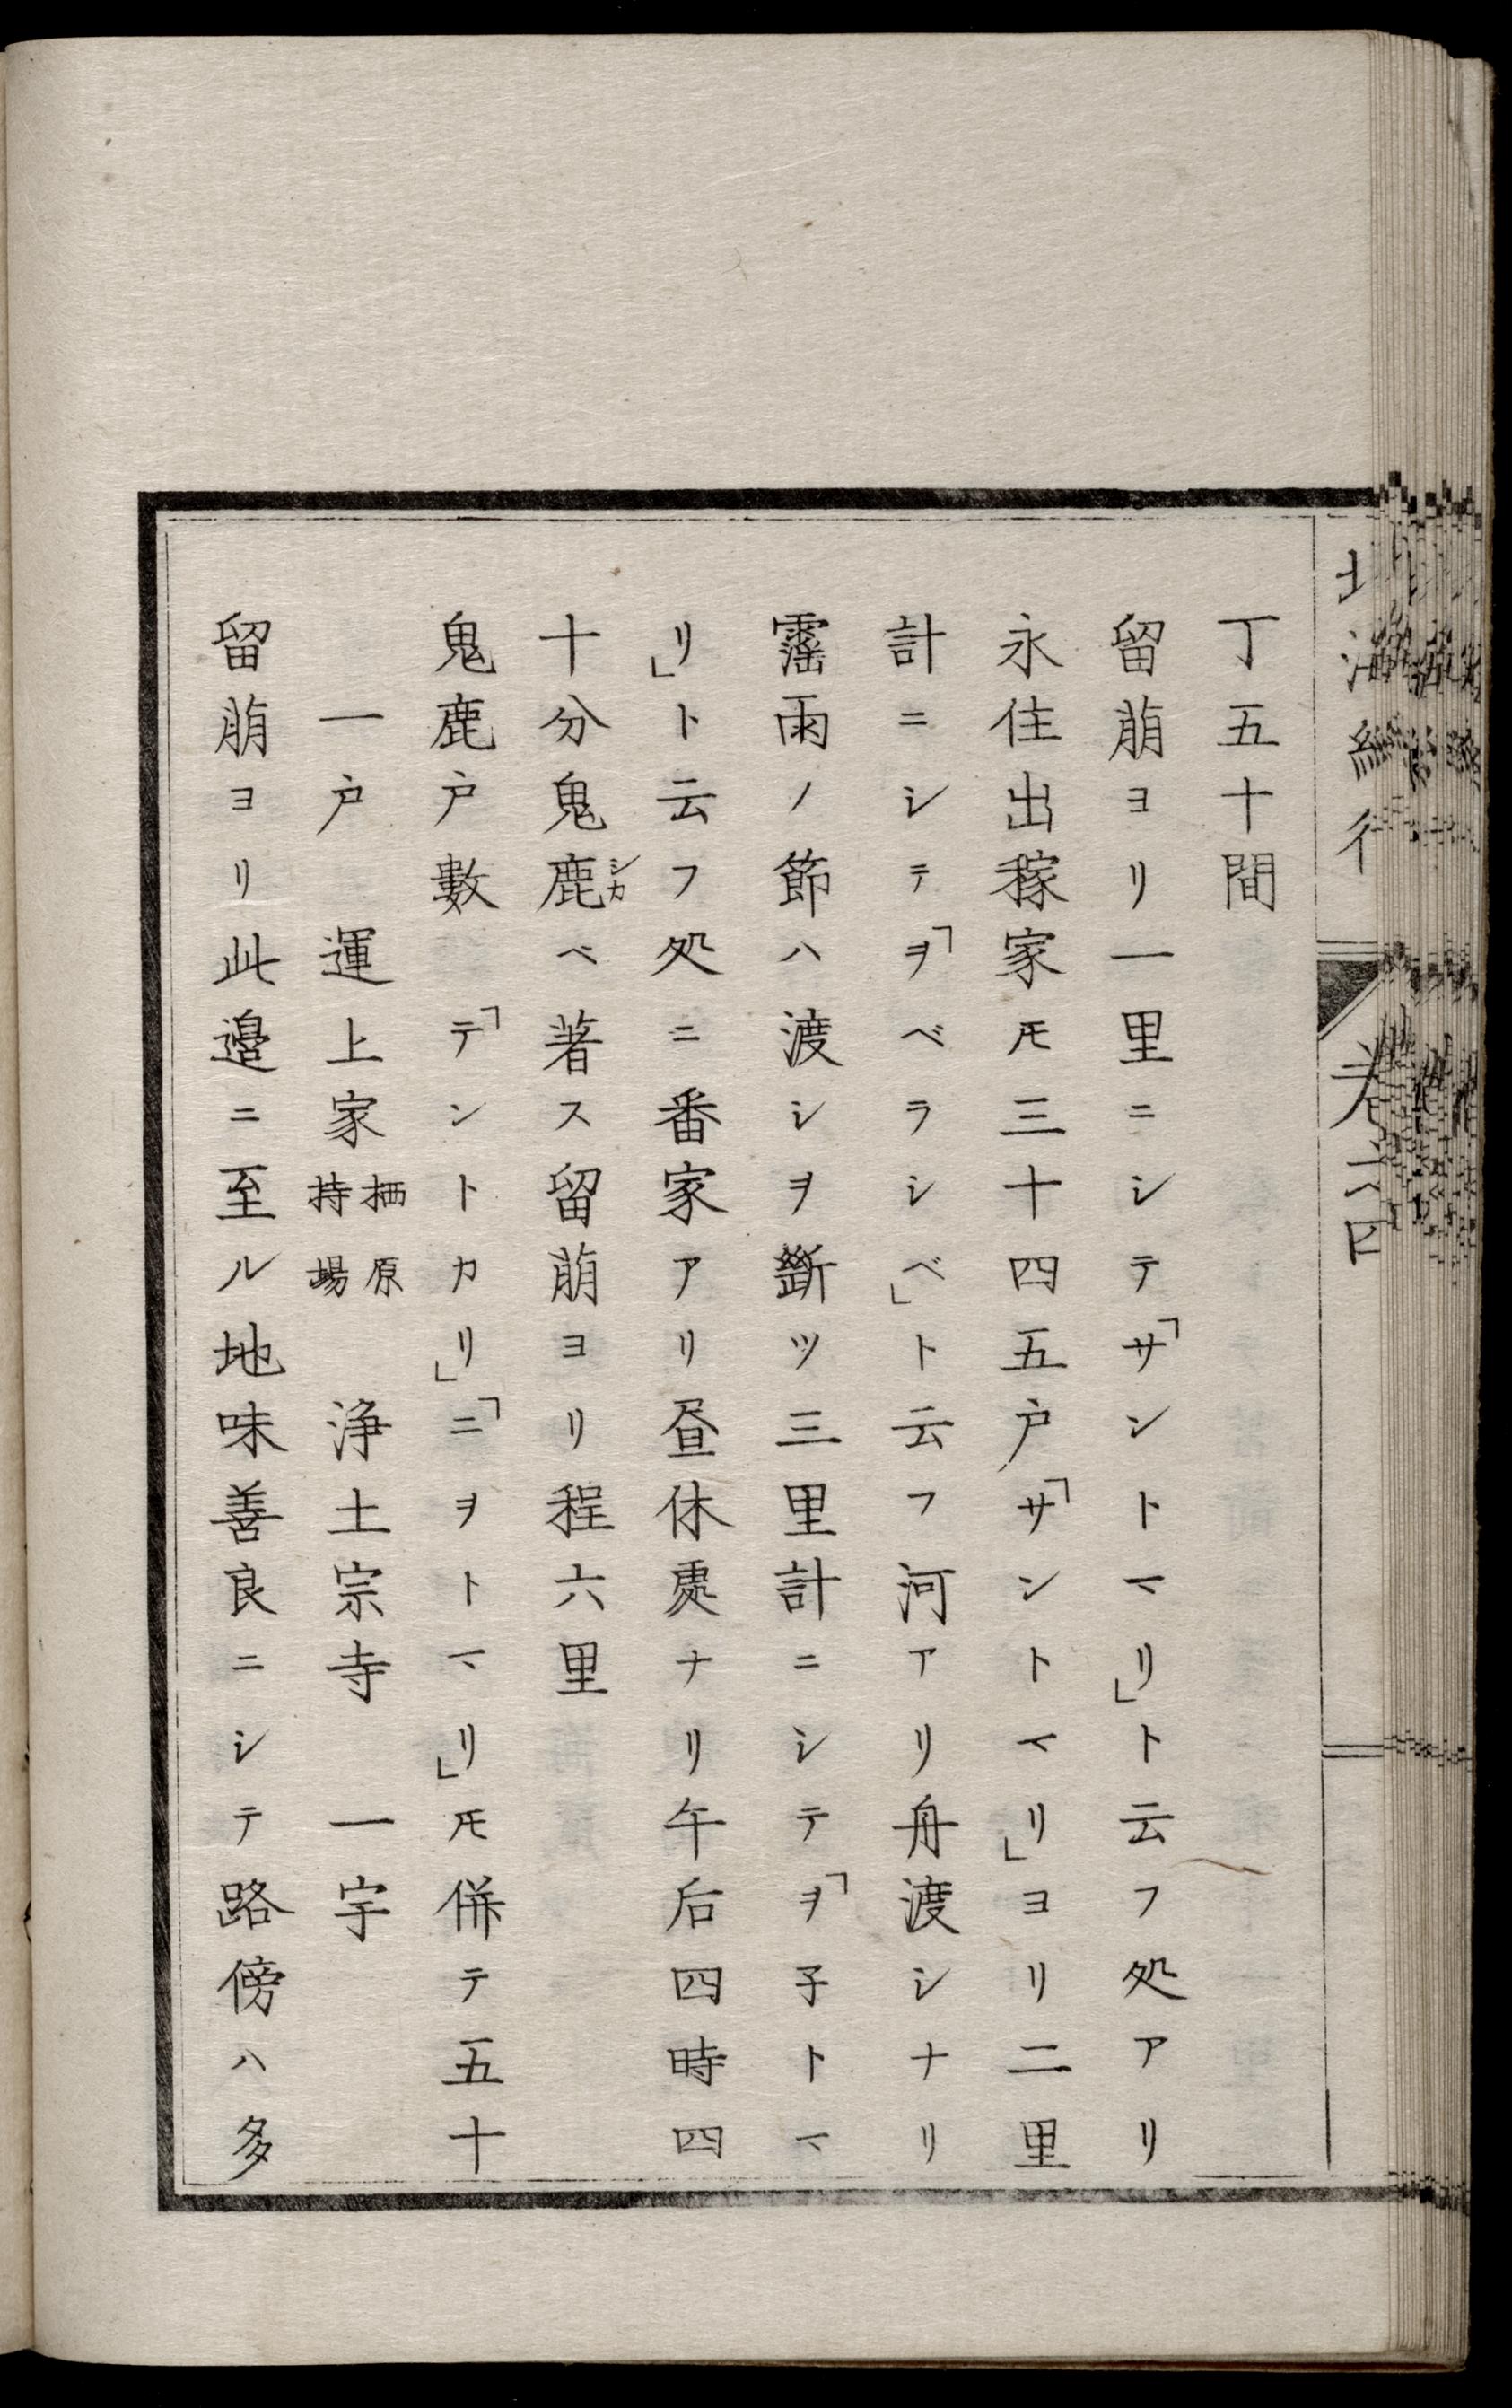 丁五十間
留萠ヨリ一里ニシテ「サントマリ」ト云フ処アリ
永住出稼家モ三十四五戸「サントマリ」ヨリ二里
計ニシテ「ヲベラシベ」ト云フ河アリ舟渡シナリ
霪雨ノ節ハ渡シヲ斷ツ三里計ニシテ「ヲ子トマ
リ」ト云フ処ニ番家アリ昼休處ナリ午后四時四
十分鬼鹿シカベ著ス留萠ヨリ程六里
鬼鹿戸數「テントカリ」「ニヲトマリ」モ併テ五十
一戸 運上家栖原持場 浄土宗寺 一宇
留萠ヨリ此邉ニ至ル地味善良ニシテ路傍ハ多